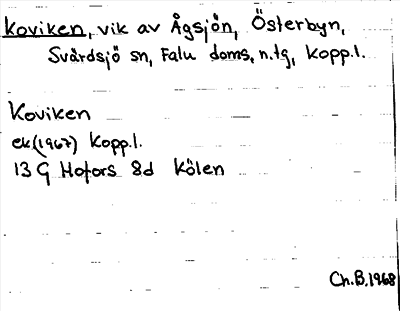 Koviken, vik av Ågsjön, Österbyn,
Svärdsjö sn, Falu doms. n. tg, Kopp. l.
Koviken
ek (1967) Kopp. l.
13 G Hofors 8d Kölen
Ch. B. 1968